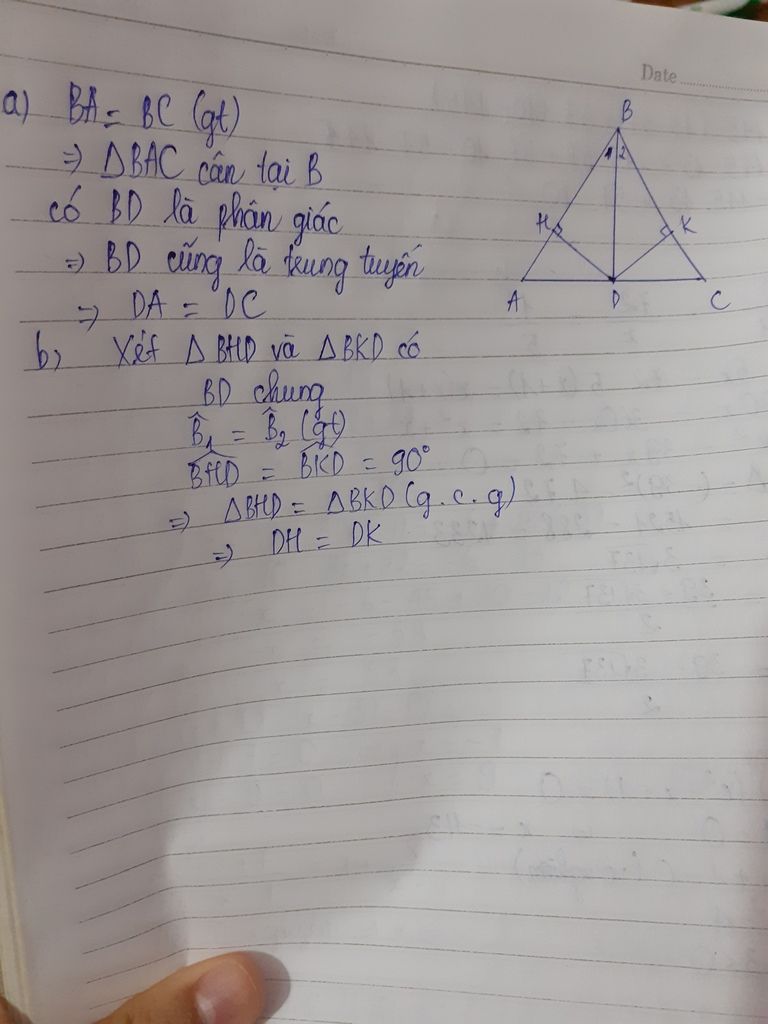 Date
a) BA = BC (gt)
⇒ ΔBAC cân tại B
có BD là phân giác
⇒ BD cũng là trung tuyến
⇒ DA = DC
b, Xét ΔBHD và ΔBKD có
BD chung
B̂₁ = B̂₂ (gt)
B͡HD = B͡KD = 90°
⇒ ΔBHD = ΔBKD (g.c.g)
⇒ DH = DK
B
1 2
H K
A D C